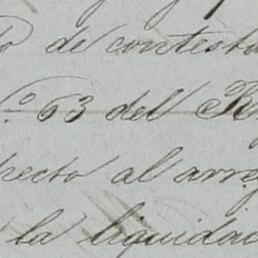 de contesta
º 63 del R
pecto al arre
la liquidac